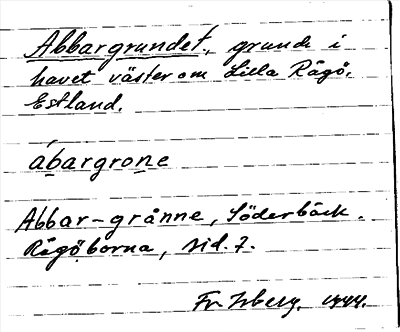 Abbargrundet, grund i
havet väster om Lilla Rågö,
Estland.
ábargrone
Abbar-grånne, Söderbäck.
Rågöborna, sid. 7.
1944.